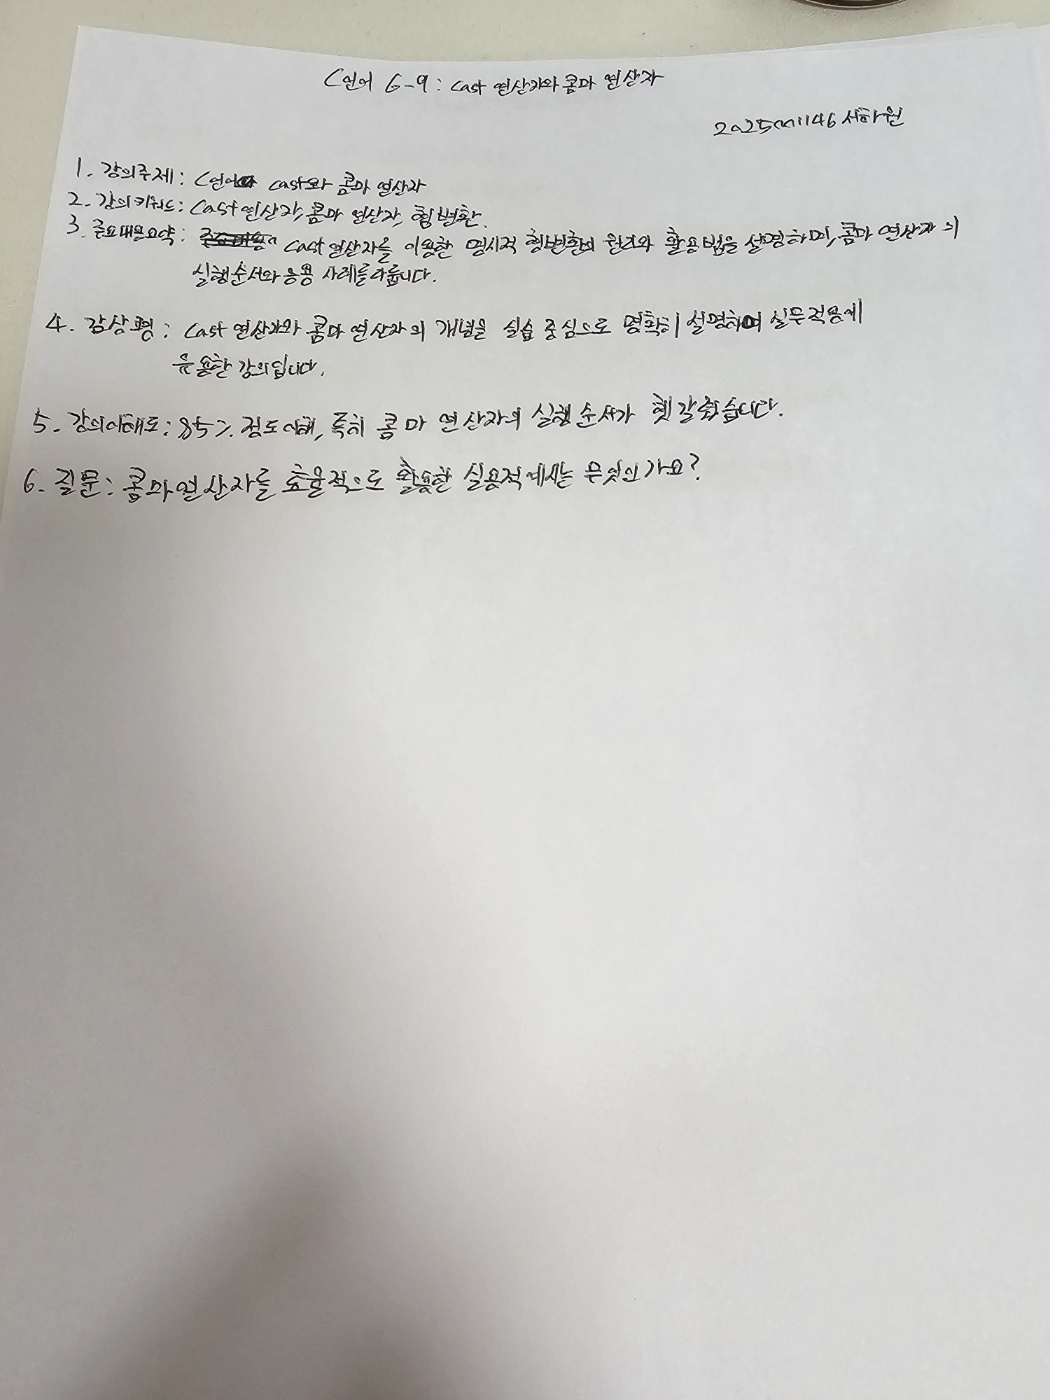 C언어 6-9: cast 연산자와 콤마 연산자
2025001146 서하원
1. 강의주제: C언어 cast와 콤마 연산자
2. 강의키워드: Cast연산자, 콤마 연산자, 형변환.
3. 주요내용요약: cast연산자를 이용한 명시적 형변환의 원리와 활용법을 설명하며, 콤마 연산자의
실행순서와 응용 사례를 다룹니다.
4. 감상평: cast 연산자와 콤마 연산자의 개념을 실습 중심으로 명확히 설명하여 실무적용에
유용한 강의입니다.
5. 강의이해도: 85% 정도이해, 특히 콤마 연산자의 실행순서가 헷갈렸습니다.
6. 질문: 콤마연산자를 효율적으로 활용한 실용적예시는 무엇인가요?